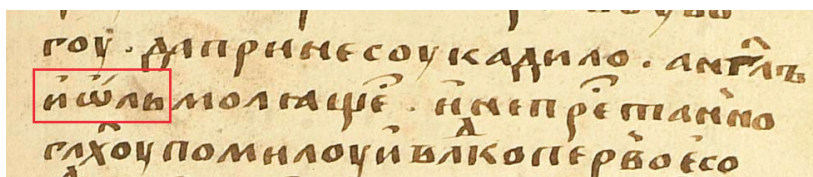 гоу · да принесоу кадило · ан҃глъ
и҆ ѿли молꙗщеⷭ · и҆ непреⷭтанно
глх҃оу помилоуи҆ влⷣко первое со